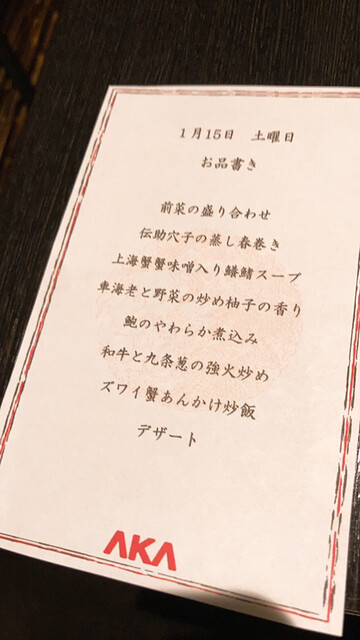 1月15日　土曜日
お品書き
前菜の盛り合わせ
伝助穴子の蒸し春巻き
上海蟹蟹味噌入り鱶鰭スープ
車海老と野菜の炒め柚子の香り
鮑のやわらか煮込み
和牛と九条葱の強火炒め
ズワイ蟹あんかけ炒飯
デザート
AKA